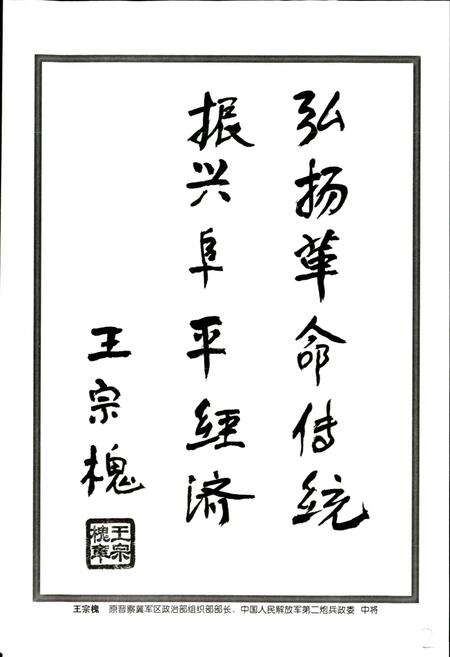 弘扬革命传统
振兴阜平经济
王宗槐
王宗槐章
王宗槐 原晋察冀军区政治部组织部部长、中国人民解放军第二炮兵政委 中将